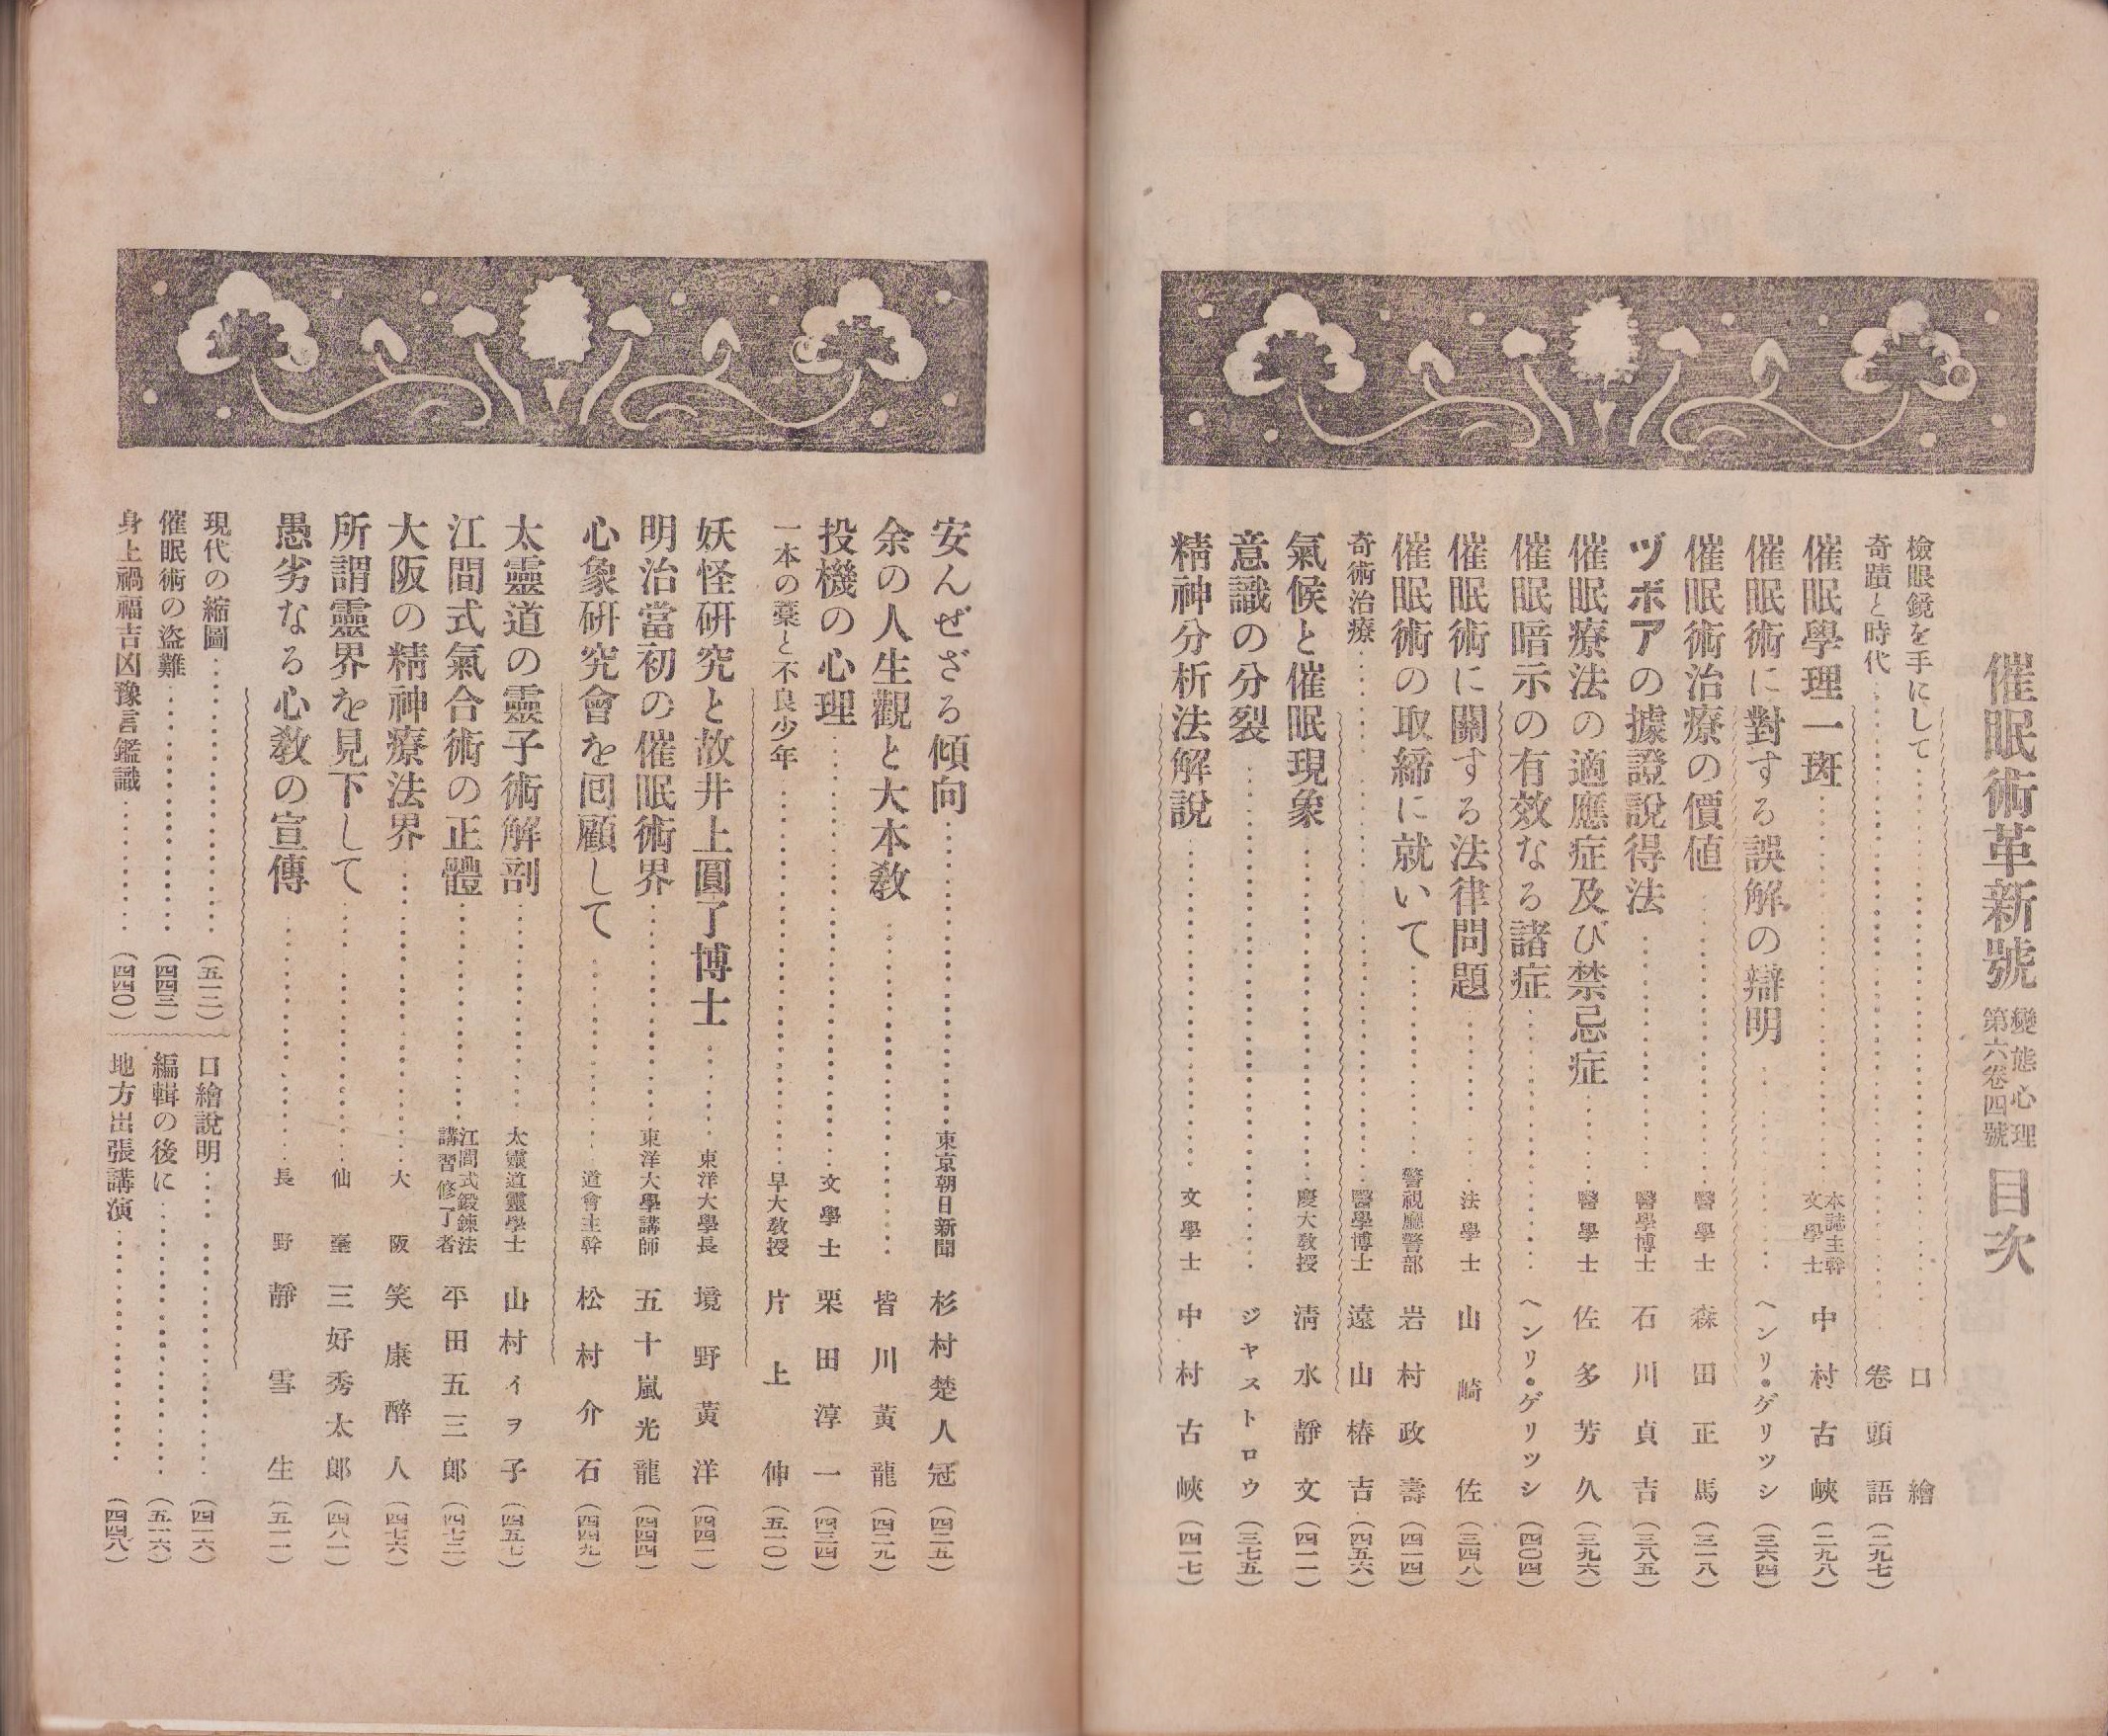 催眠術革新號 變態心理 第六卷四號 目次
檢眼鏡を手にして………口繪
奇蹟と時代………卷頭語(二九七)
催眠學理一斑………本誌主幹 文學士 中村古峽(二九八)
催眠術に對する誤解の辯明………ヘンリ・ゲリツシ(三六四)
催眠術治療の價値………醫學士 森田正馬(三一八)
ヅボアの據證說得法………醫學博士 石川貞吉(三八五)
催眠療法の適應症及び禁忌症………醫學士 佐多芳久(三九六)
催眠暗示の有效なる諸症………ヘンリ・ゲリツシ(四〇四)
催眠術に關する法律問題………法學士 山崎佐(三四八)
催眠術の取締に就いて………警視廳警部 岩村政壽(四一四)
奇術治療………醫學博士 遠山椿吉(四五六)
氣候と催眠現象………慶大教授 淸水靜文(四一一)
意識の分裂………ジヤストロウ(三七五)
精神分析法解說………文學士 中村古峽(四一七)
安んぜざる傾向………東京朝日新聞 杉村楚人冠(四二五)
余の人生觀と大本敎………皆川黃龍(四二九)
投機の心理………文學士 栗田淳一(四三四)
一本の藁と不良少年………早大教授 片上伸(五一〇)
妖怪硏究と故井上圓了博士………東洋大學長 境野黃洋(四四一)
明治當初の催眠術界………東洋大學講師 五十嵐光龍(四四四)
心象硏究會を囘顧して………道會主幹 松村介石(四四九)
太靈道の靈子術解剖………太靈道靈學士 山村イヲ子(四五七)
江間式氣合術の正體………江間式鍛鍊法講習修了者 平田五三郎(四七二)
大阪の精神療法界………大阪 笑康醉人(四七六)
所謂靈界を見下して………仙臺 三好秀太郎(四八一)
愚劣なる心敎の宣傳………長野 靜雪生(五一一)
現代の縮圖………(五一二)
催眠術の盜難………(四四三)
身上禍福吉凶豫言鑑識………(四四〇)
口繪說明………(四一六)
編輯の後に………(五一六)
地方出張講演………(四四八)